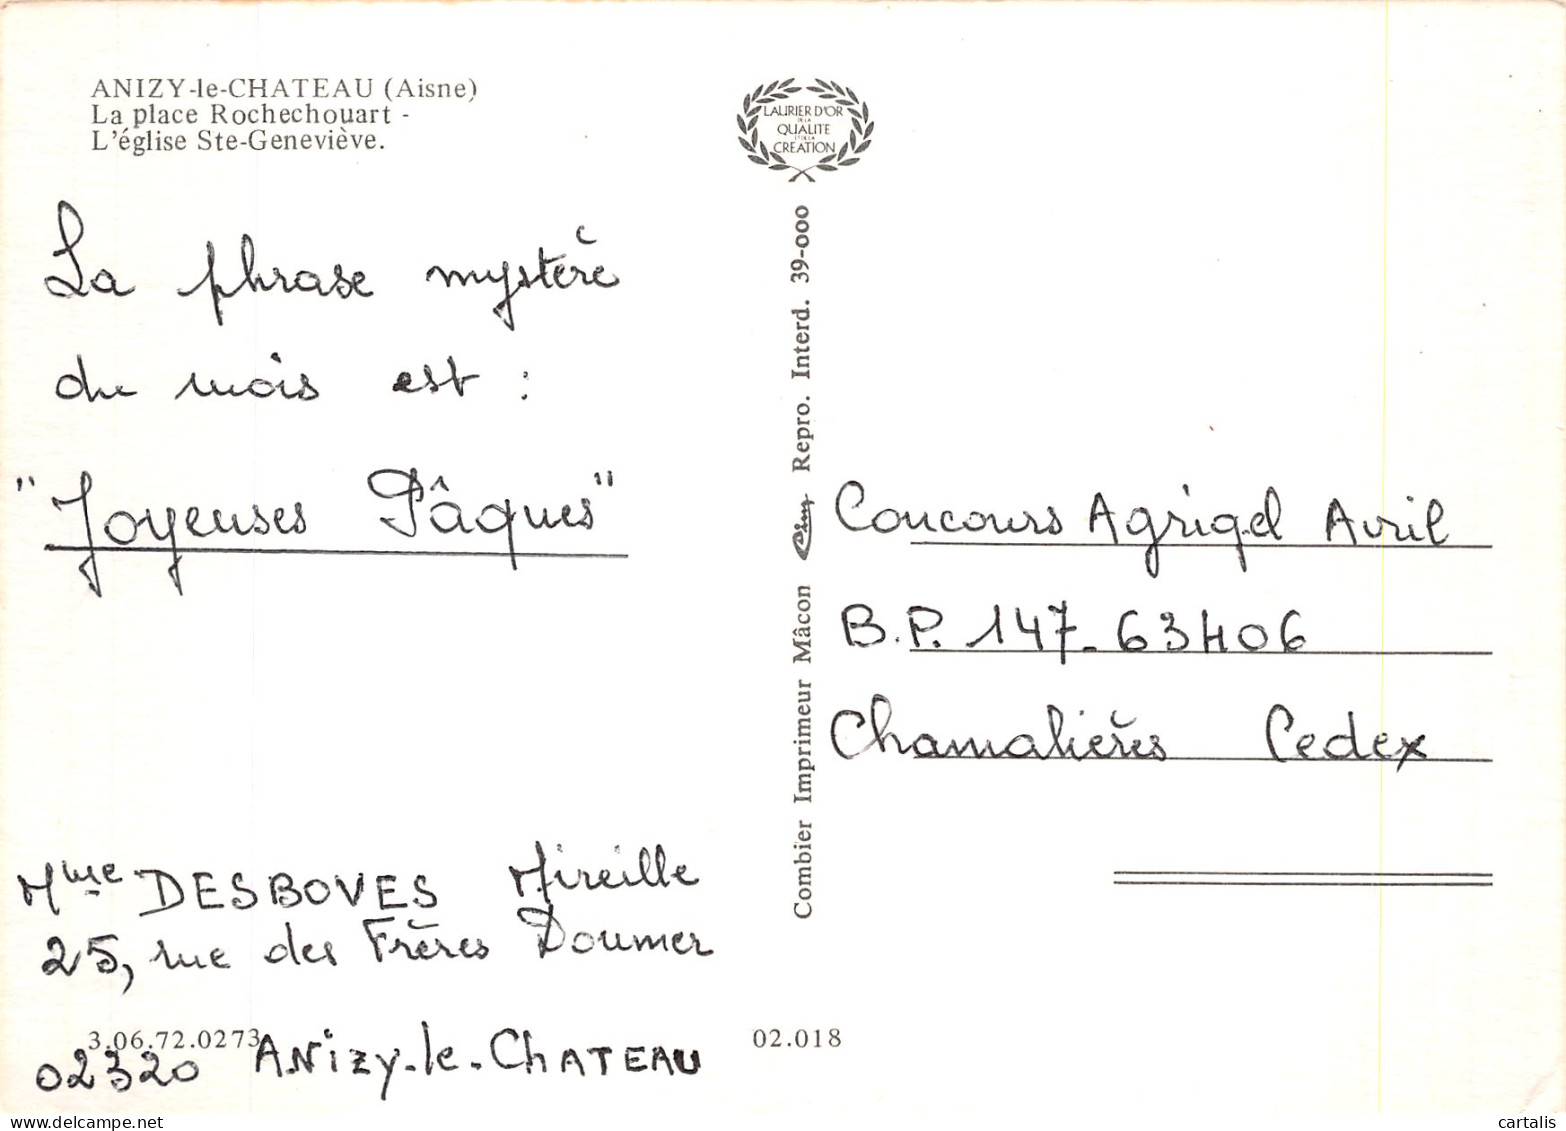 ANIZY-le-CHATEAU (Aisne)
La place Rochechouart -
L'église Ste-Geneviève.
LAURIER D'OR
DE LA
QUALITE
ET DE LA
CREATION
La phrase mystère
du mois est :
"Joyeuses Pâques"
Mme DESBOVES Mireille
25, rue des Frères Doumer
3.06.72.0273
02320 ANizy-le-ChATEAU
Combier Imprimeur Mâcon Cim Repro. Interd. 39-000
Concours Agrigel Avril
B.P. 147-63406
Chamalières Cedex
02.018
cartalis